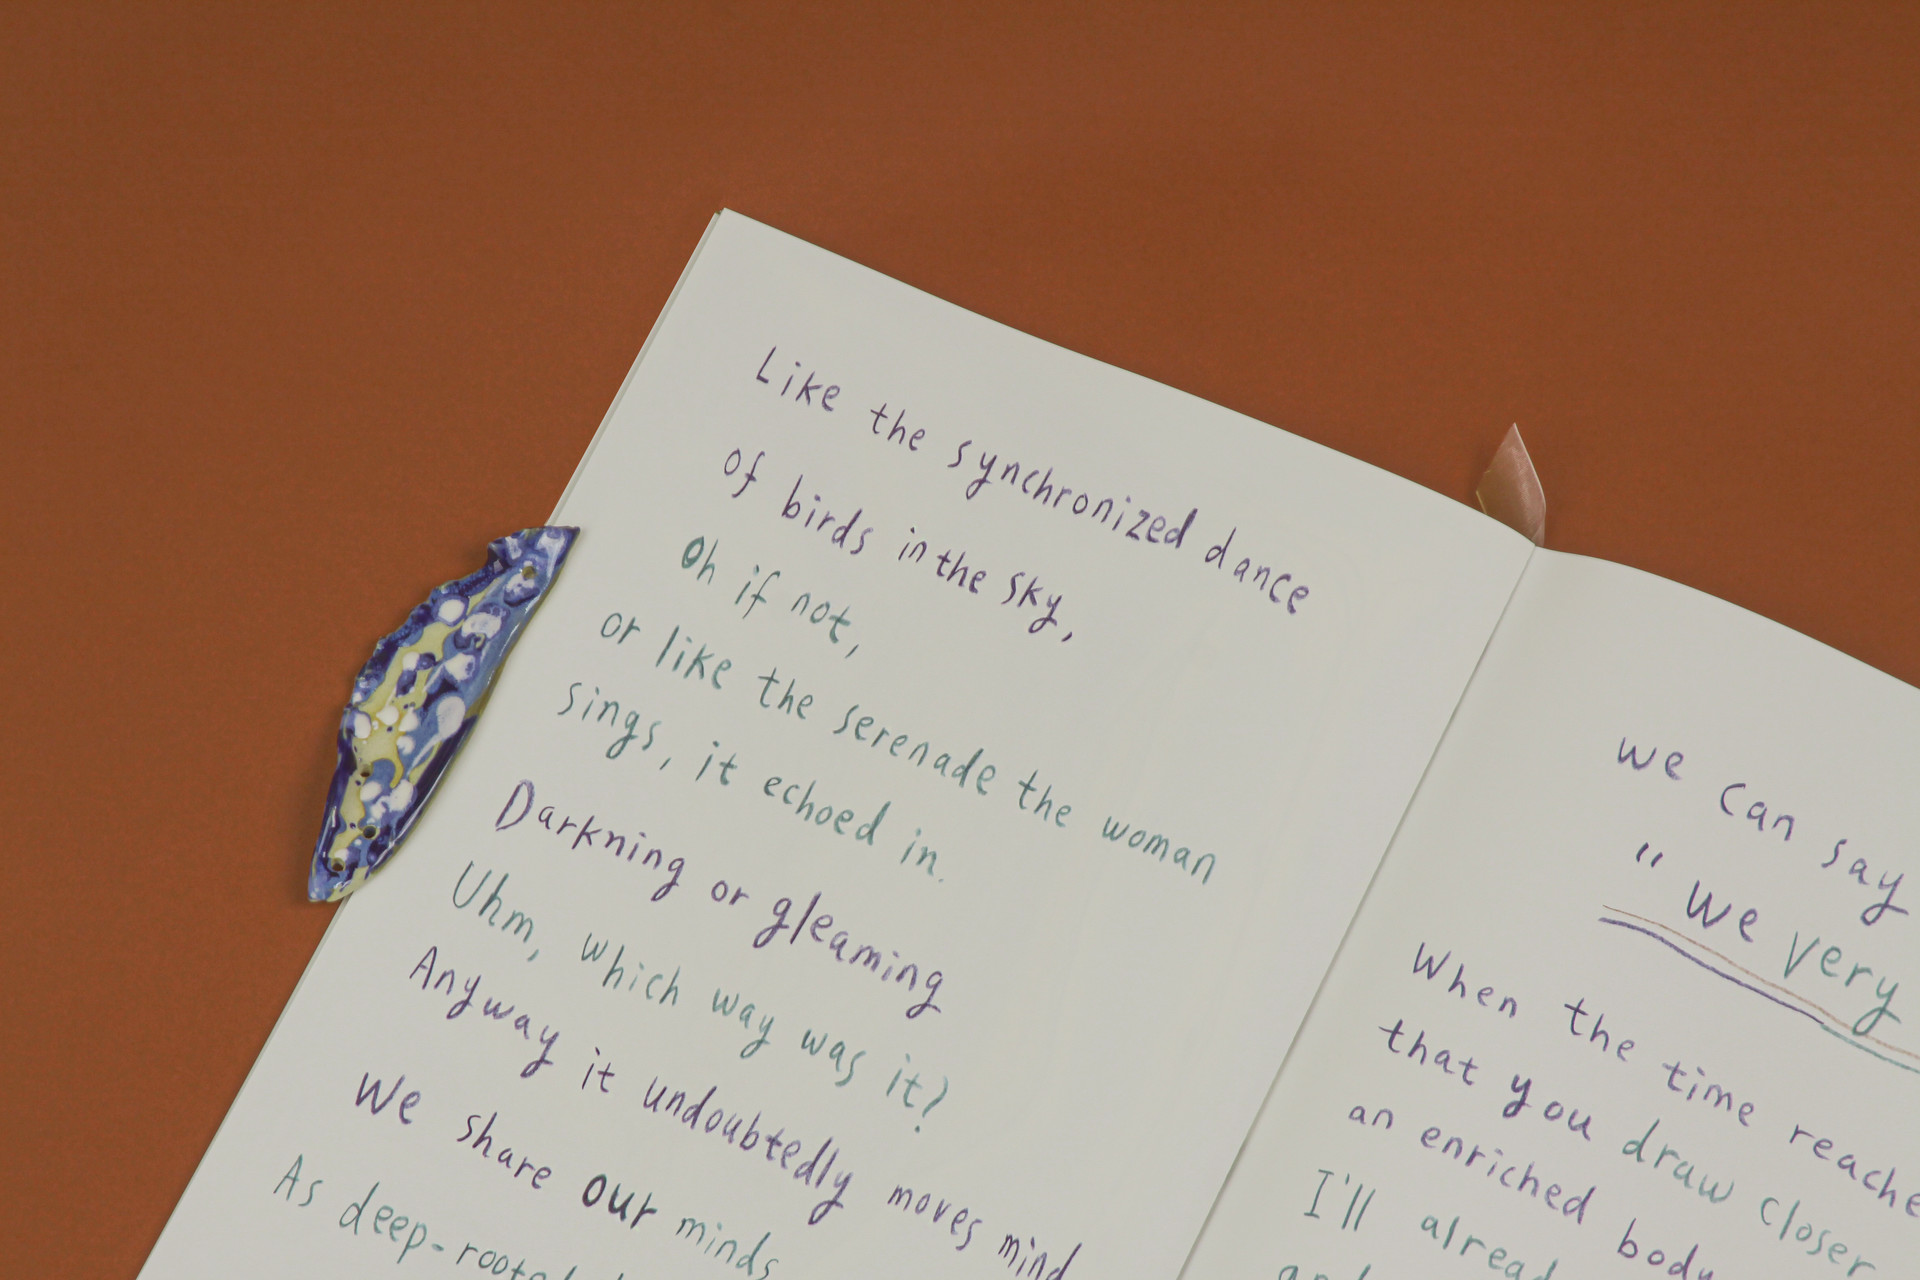 Like the synchronized dance
of birds in the sky,
Oh if not,
or like the serenade the woman
sings, it echoed in.
Darkning or gleaming
Uhm, which way was it?
Anyway it undoubtedly moves mind
We share our minds
As deep-
we can say
" We very
When the time
that you draw closer
an enriched body
I'll